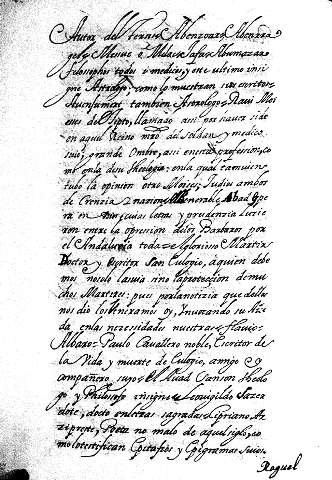 Autor del Abenzoar, Abenrra
gel, Mesue ò
filosophos todos y medicos, este ultimo insi
gne Astrologo, como lo muestran sus escritos
tambien Astrologo; Ravi Moi
ses de Egipto, llamado assi por haver sido
en aquel Reino medico
suio, grande Ombre, assi en esta profession, co
mo en la de su theologia; en la qual tambien
tubo la opinion otro Moises, Judios ambos
de Creencia y nacion; El Venerable Abad Spe
ra in Deo, cuias letras y prudencia lucie
ron entre la opresion de los Barbaros por
el Andalucia toda; el glorioso Martir
Doctor y Escritor San Eulogio, a quien debe
mos no solo la suia sino la proteccion de mu
chos Martires; pues por la noticia que dellos
nos dio los honramos oy, Invocando su Aiu
da en las necesidades nuestras; flavio
Albaro Paulo Cavallero noble, Escritor de
la Vida y muerte de Eulogio, amigo y
compañero suyo; El Abad Sanson theolo
go y Philosofo insigne; Leovigildo Sazer
dote, docto en letras sagradas; Cipriano, Ar
zipreste, Poeta no malo de aquel siglo, co
mo lo testifican Epitafios y Epigramas suios.
Roguel